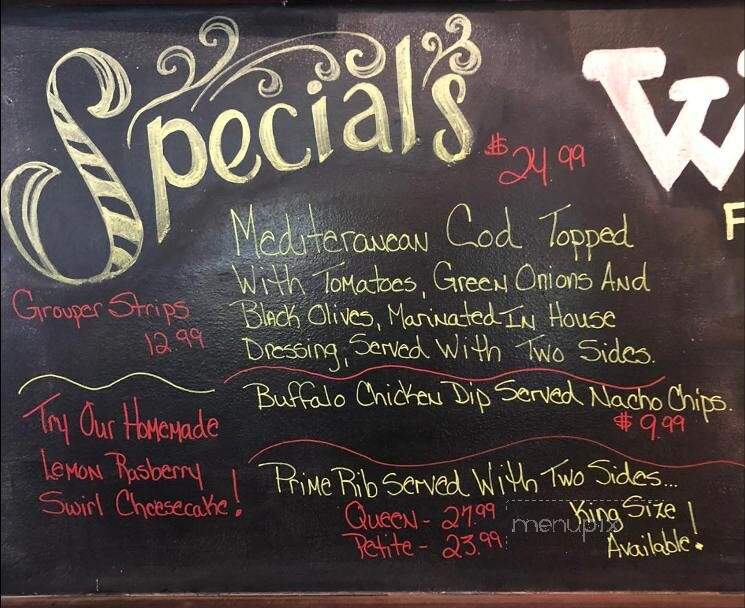 Specials
$24.99
Mediteranean Cod Topped
With Tomatoes, Green Onions And
Black Olives, Marinated In House
Dressing, Served With Two Sides.
Grouper Strips
12.99
Buffalo Chicken Dip Served Nacho Chips.
$9.99
Try Our Homemade
Lemon Rasberry
Swirl Cheesecake!
Prime Rib Served With Two Sides...
Queen - 27.99
Petite - 23.99
King Size
Available!
menupix